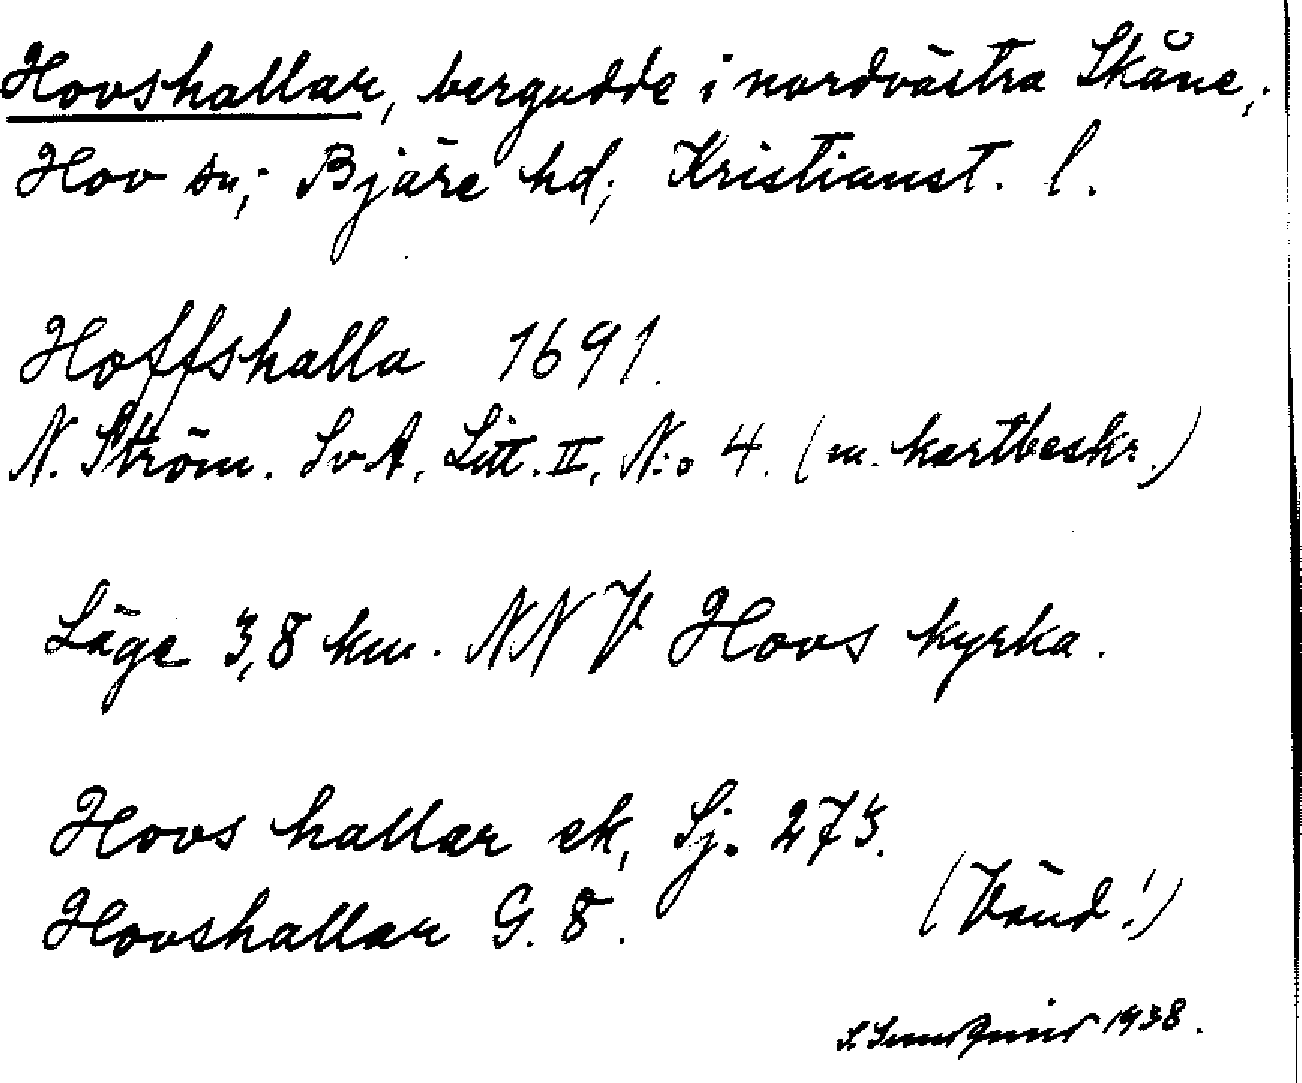 Hovshallar, bergudde i nordvästra Skåne,;
Hov sn; Bjäre hd; Kristianst. l.
Hoffshalla 1691.
N. Ström. SvA. Litt. II, N:o 4. (m. kartbeskr.)
Läge 3,8 km. NNV Hovs kyrka.
Hovs hallar ek, Sj. 273.
Hovshallar G. 8.
(Vänd!)
S. Sundqvist 1938.